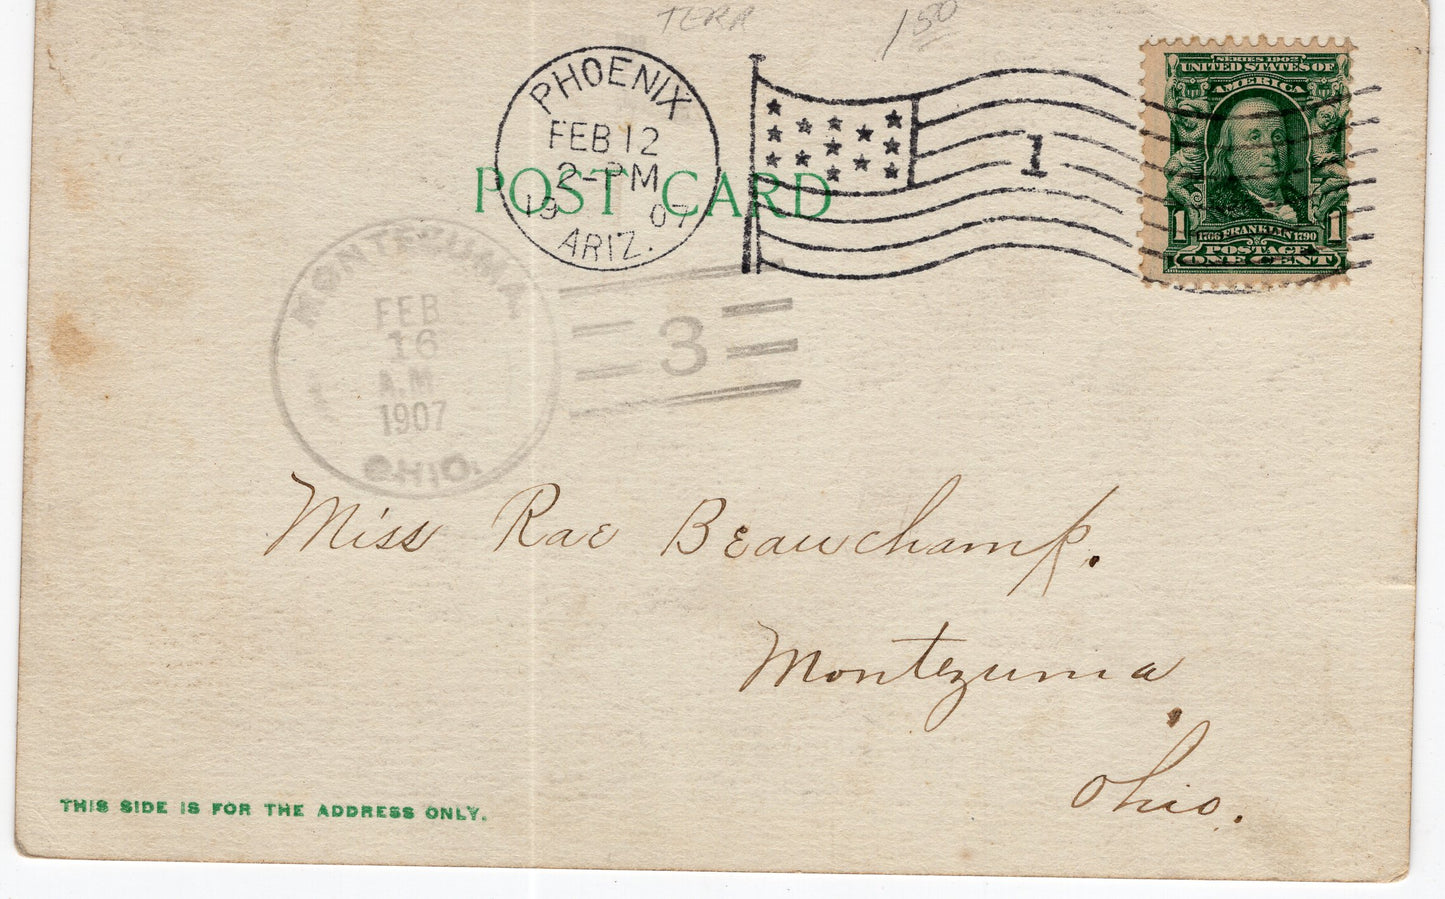 TERR 1 50
PHOENIX
FEB 12
2-PM
19 07
ARIZ.
1
SERIES 1902
UNITED STATES OF
AMERICA
1 1
1706 FRANKLIN 1790
POSTAGE
ONE CENT
POST CARD
MONTEZUMA
FEB
16
A.M.
1907
OHIO.
3
Miss Rae Beauchamp.
Montezuma
Ohio.
THIS SIDE IS FOR THE ADDRESS ONLY.